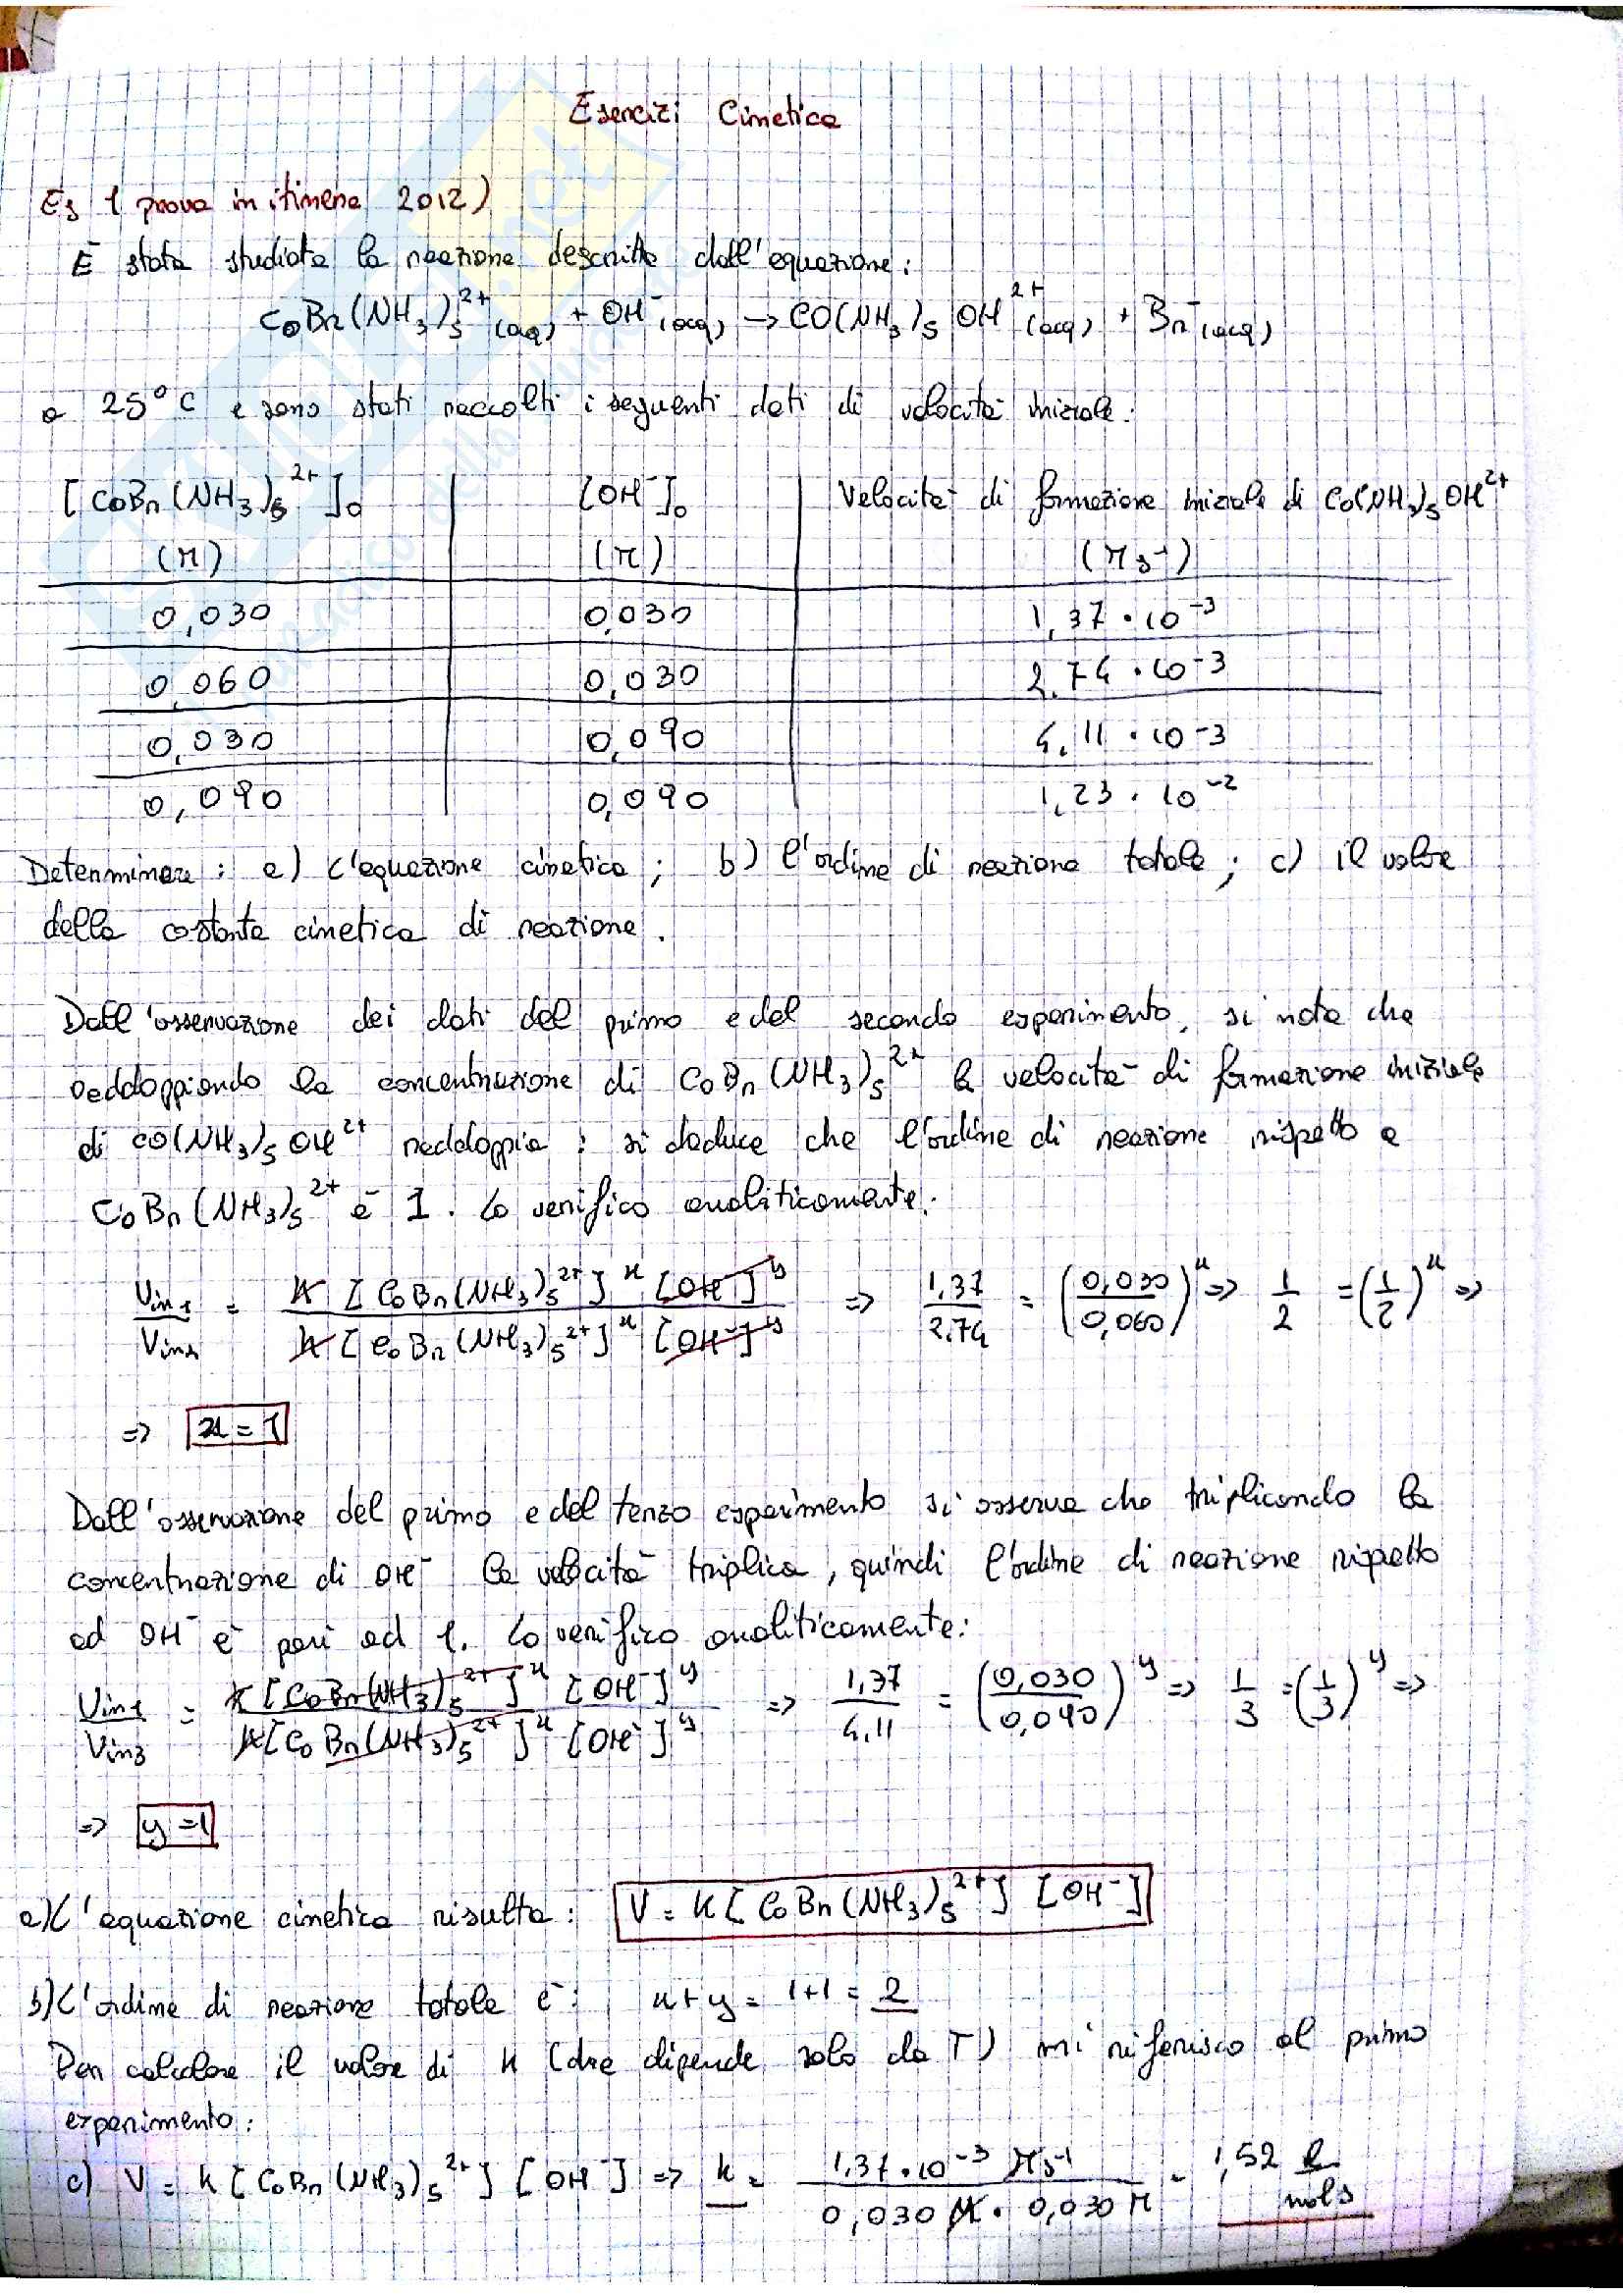 Esercizi Cinetica
Es 1 prova in itinere 2012)
È stata studiata la reazione descritta dall'equazione:
CoBr(NH₃)₅²⁺(aq) + OH⁻(acq) → CO(NH₃)₅OH²⁺(acq) + Br⁻(acq)
a 25°C e sono stati raccolti i seguenti dati di velocità iniziale:
[CoBr(NH₃)₅²⁺]₀ [OH⁻]₀ Velocità di formazione iniziale di Co(NH₃)₅OH²⁺
(M) (M) (M s⁻¹)
0,030 0,030 1,37 · 10⁻³
0,060 0,030 2,74 · 10⁻³
0,030 0,090 4,11 · 10⁻³
0,090 0,090 1,23 · 10⁻²
Determinare: a) l'equazione cinetica; b) l'ordine di reazione totale; c) il valore
della costante cinetica di reazione.
Dall'osservazione dei dati del primo e del secondo esperimento, si nota che
raddoppiando la concentrazione di CoBr(NH₃)₅²⁺ la velocità di formazione iniziale
di CO(NH₃)₅OH²⁺ raddoppia: si deduce che l'ordine di reazione rispetto a
CoBr(NH₃)₅²⁺ è 1. Lo verifico analiticamente:
Vin1/Vin2 = K [CoBr(NH₃)₅²⁺]ˣ [OH⁻]ʸ / K [CoBr(NH₃)₅²⁺]ˣ [OH⁻]ʸ => 1,37/2,74 = (0,030/0,060)ˣ => 1/2 = (1/2)ˣ =>
=> x = 1
Dall'osservazione del primo e del terzo esperimento si osserva che triplicando la
concentrazione di OH⁻ la velocità triplica, quindi l'ordine di reazione rispetto
ad OH⁻ è pari ad 1. Lo verifico analiticamente:
Vin1/Vin3 = K [CoBr(NH₃)₅²⁺]ˣ [OH⁻]ʸ / K [CoBr(NH₃)₅²⁺]ˣ [OH⁻]ʸ => 1,37/4,11 = (0,030/0,090)ʸ => 1/3 = (1/3)ʸ =>
=> y = 1
a) L'equazione cinetica risulta: V = K [CoBr(NH₃)₅²⁺] [OH⁻]
b) L'ordine di reazione totale è: x + y = 1+1 = 2
Per calcolare il valore di K (che dipende solo da T) mi riferisco al primo
esperimento:
c) V = K [CoBr(NH₃)₅²⁺] [OH⁻] => K = 1,37 · 10⁻³ M s⁻¹ / 0,030 M · 0,030 M = 1,52 l / mol s